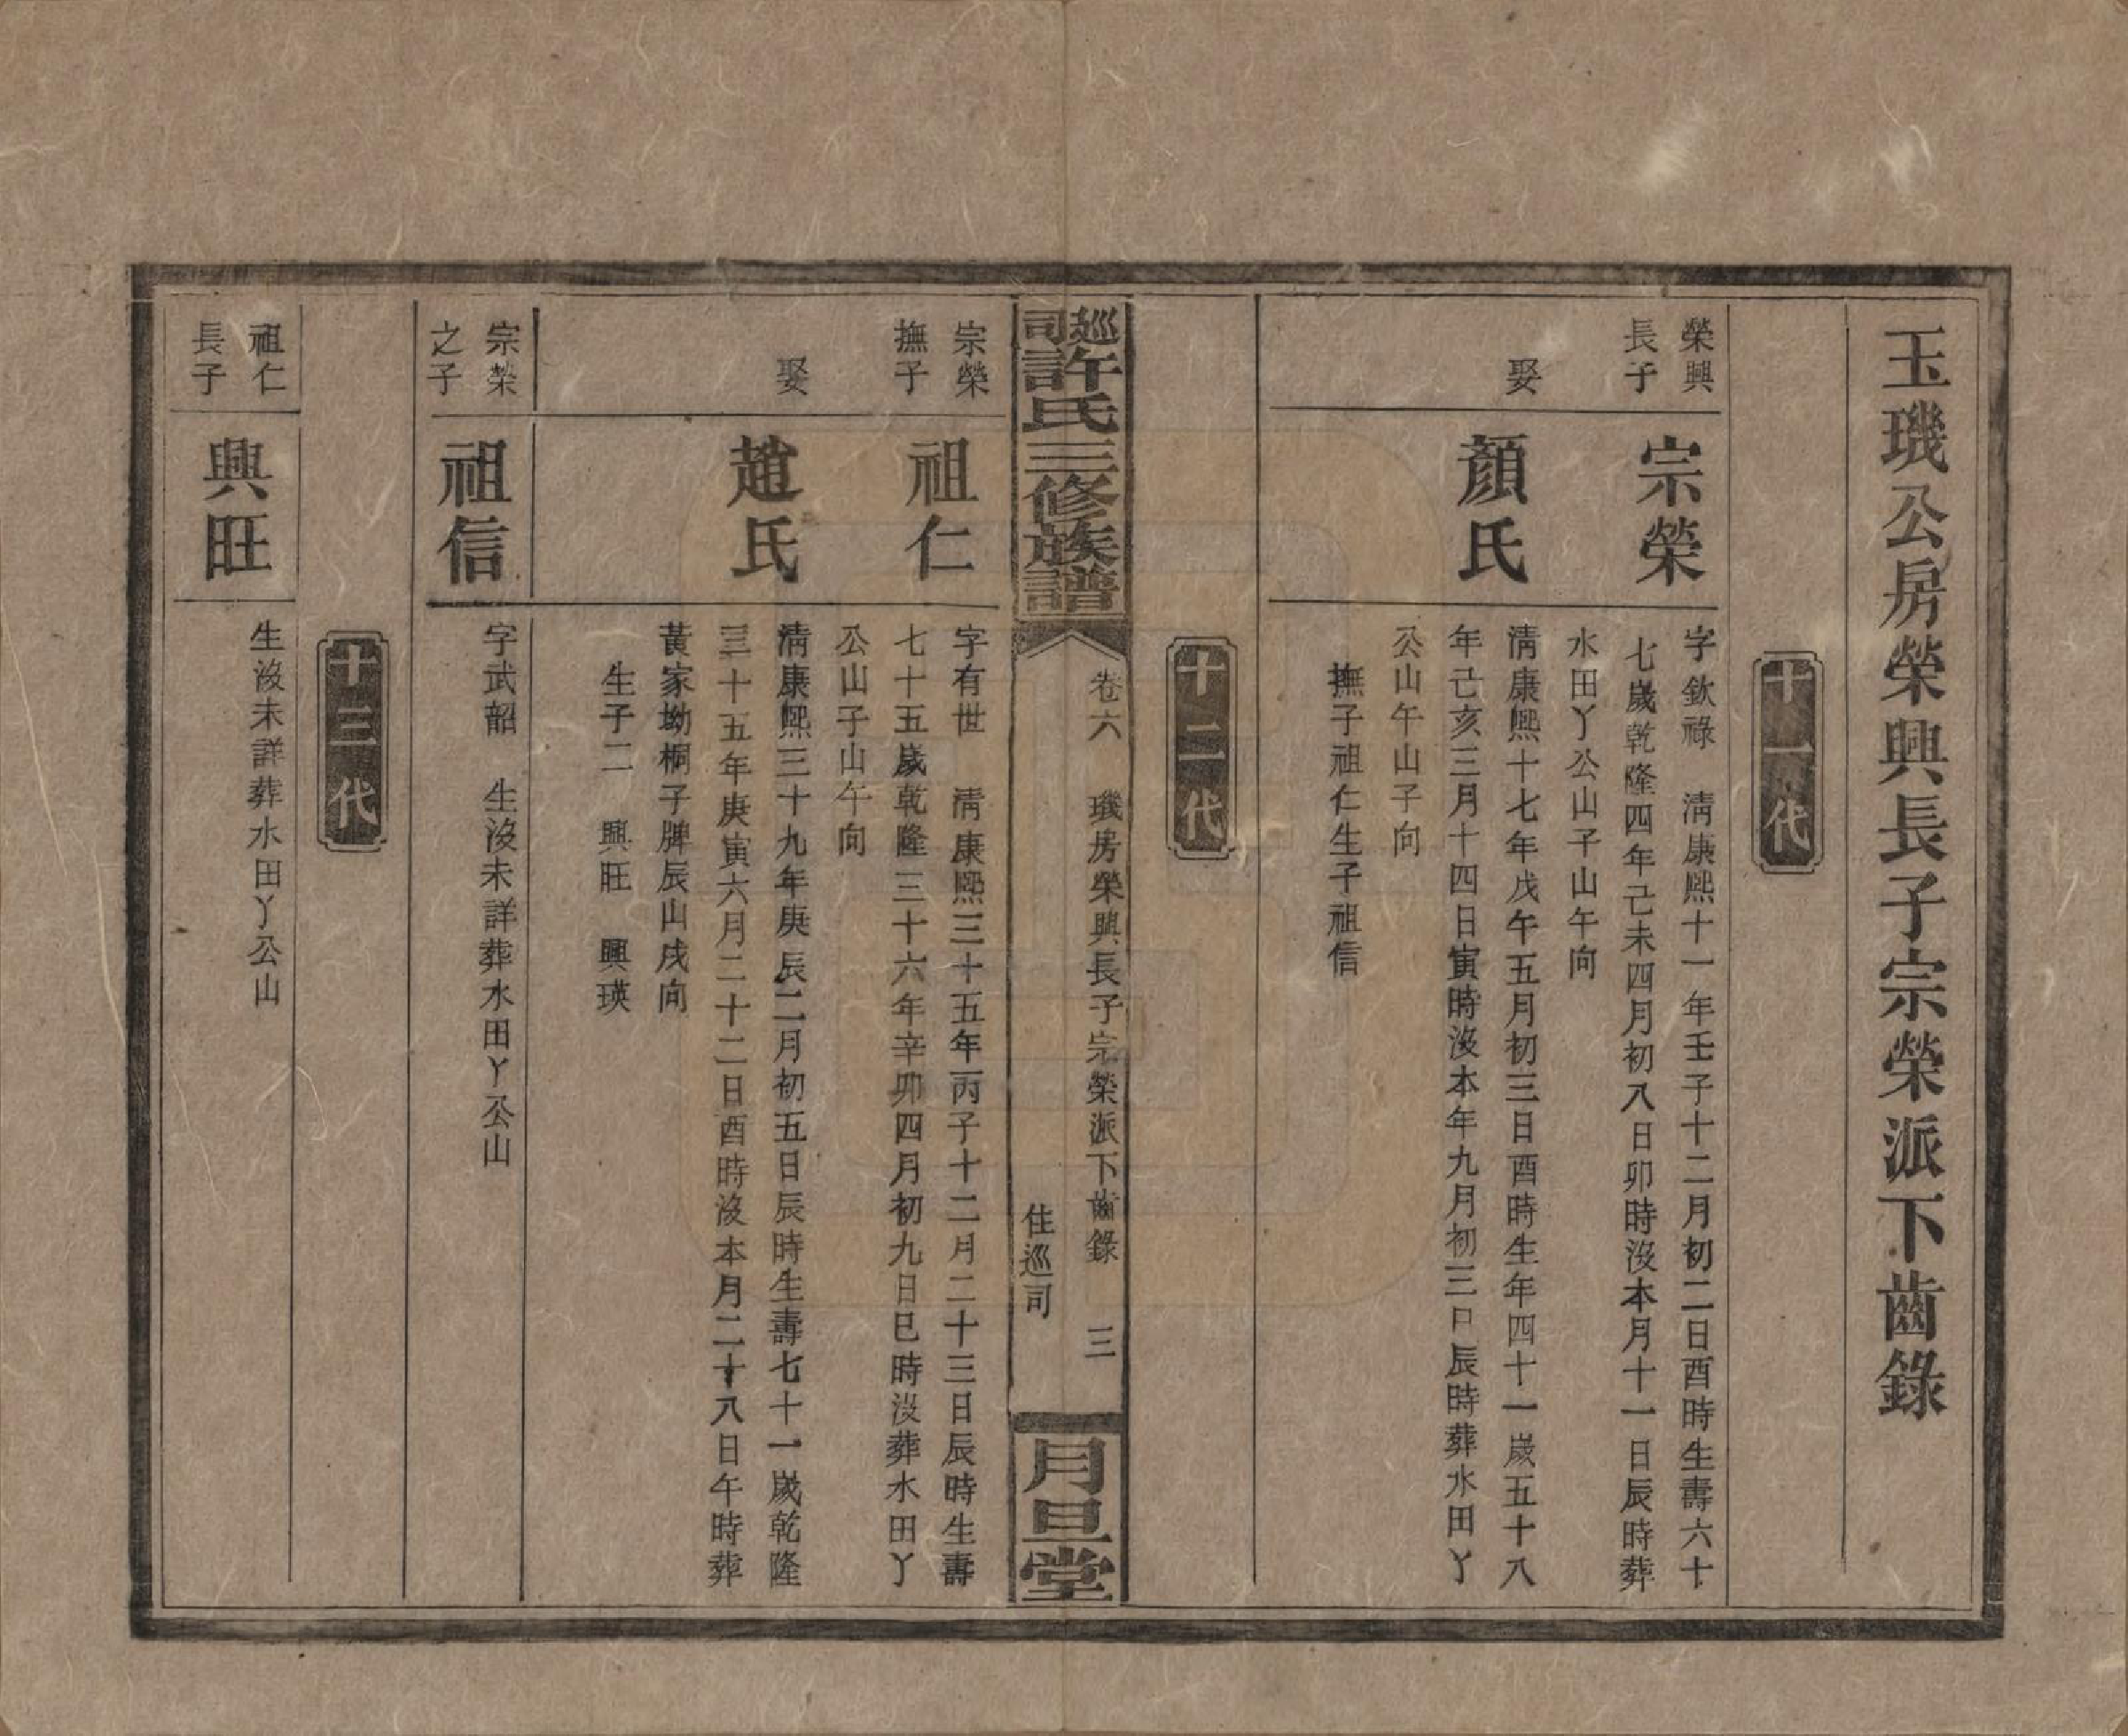 玉璣公房榮興長子宗榮派下齒錄
十一代
榮興
長子
宗榮
字欽祿　淸康熙十一年壬子十二月初二日酉時生壽六十
七歲乾隆四年己未四月初八日卯時沒本月十一日辰時葬
水田丫公山子山午向
娶
顏氏
淸康熙十七年戊午五月初三日酉時生年四十一歲五十八
年己亥三月十四日寅時沒本年九月初三日辰時葬水田丫
公山午山子向
撫子祖仁生子祖信
十二代
巡司許氏三修族譜
卷六　璣房榮興長子宗榮派下齒錄　三
住巡司
月旦堂
宗榮
撫子
祖仁
字有世　淸康熙三十五年丙子十二月二十三日辰時生壽
七十五歲乾隆三十六年辛卯四月初九日巳時沒葬水田丫
公山子山午向
娶
趙氏
淸康熙三十九年庚辰二月初五日辰時生壽七十一歲乾隆
三十五年庚寅六月二十二日酉時沒本月二十八日午時葬
黃家坳桐子牌辰山戌向
生子二　興旺　興瑛
宗榮
之子
祖信
字武韶　生沒未詳葬水田丫公山
十三代
祖仁
長子
興旺
生沒未詳葬水田丫公山